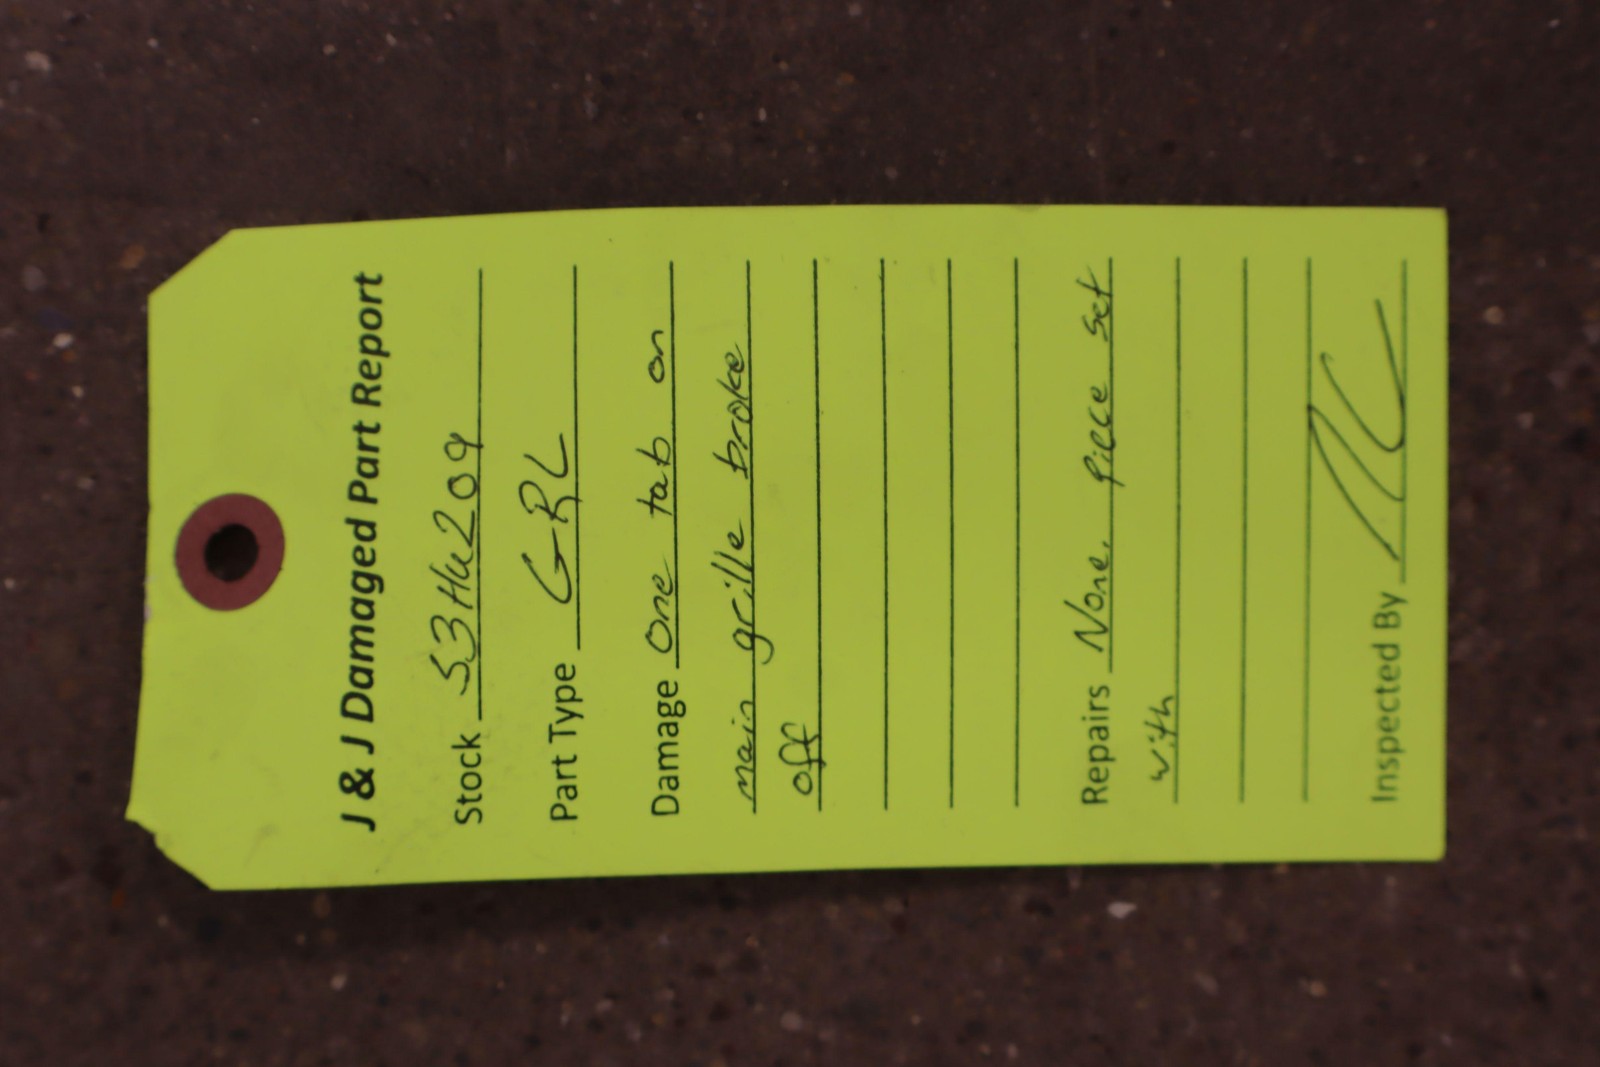 J & J Damaged Part Report
Stock S3HU209
Part Type GRL
Damage One tab on
main grille broke
off
Repairs None, piece set
with
Inspected By